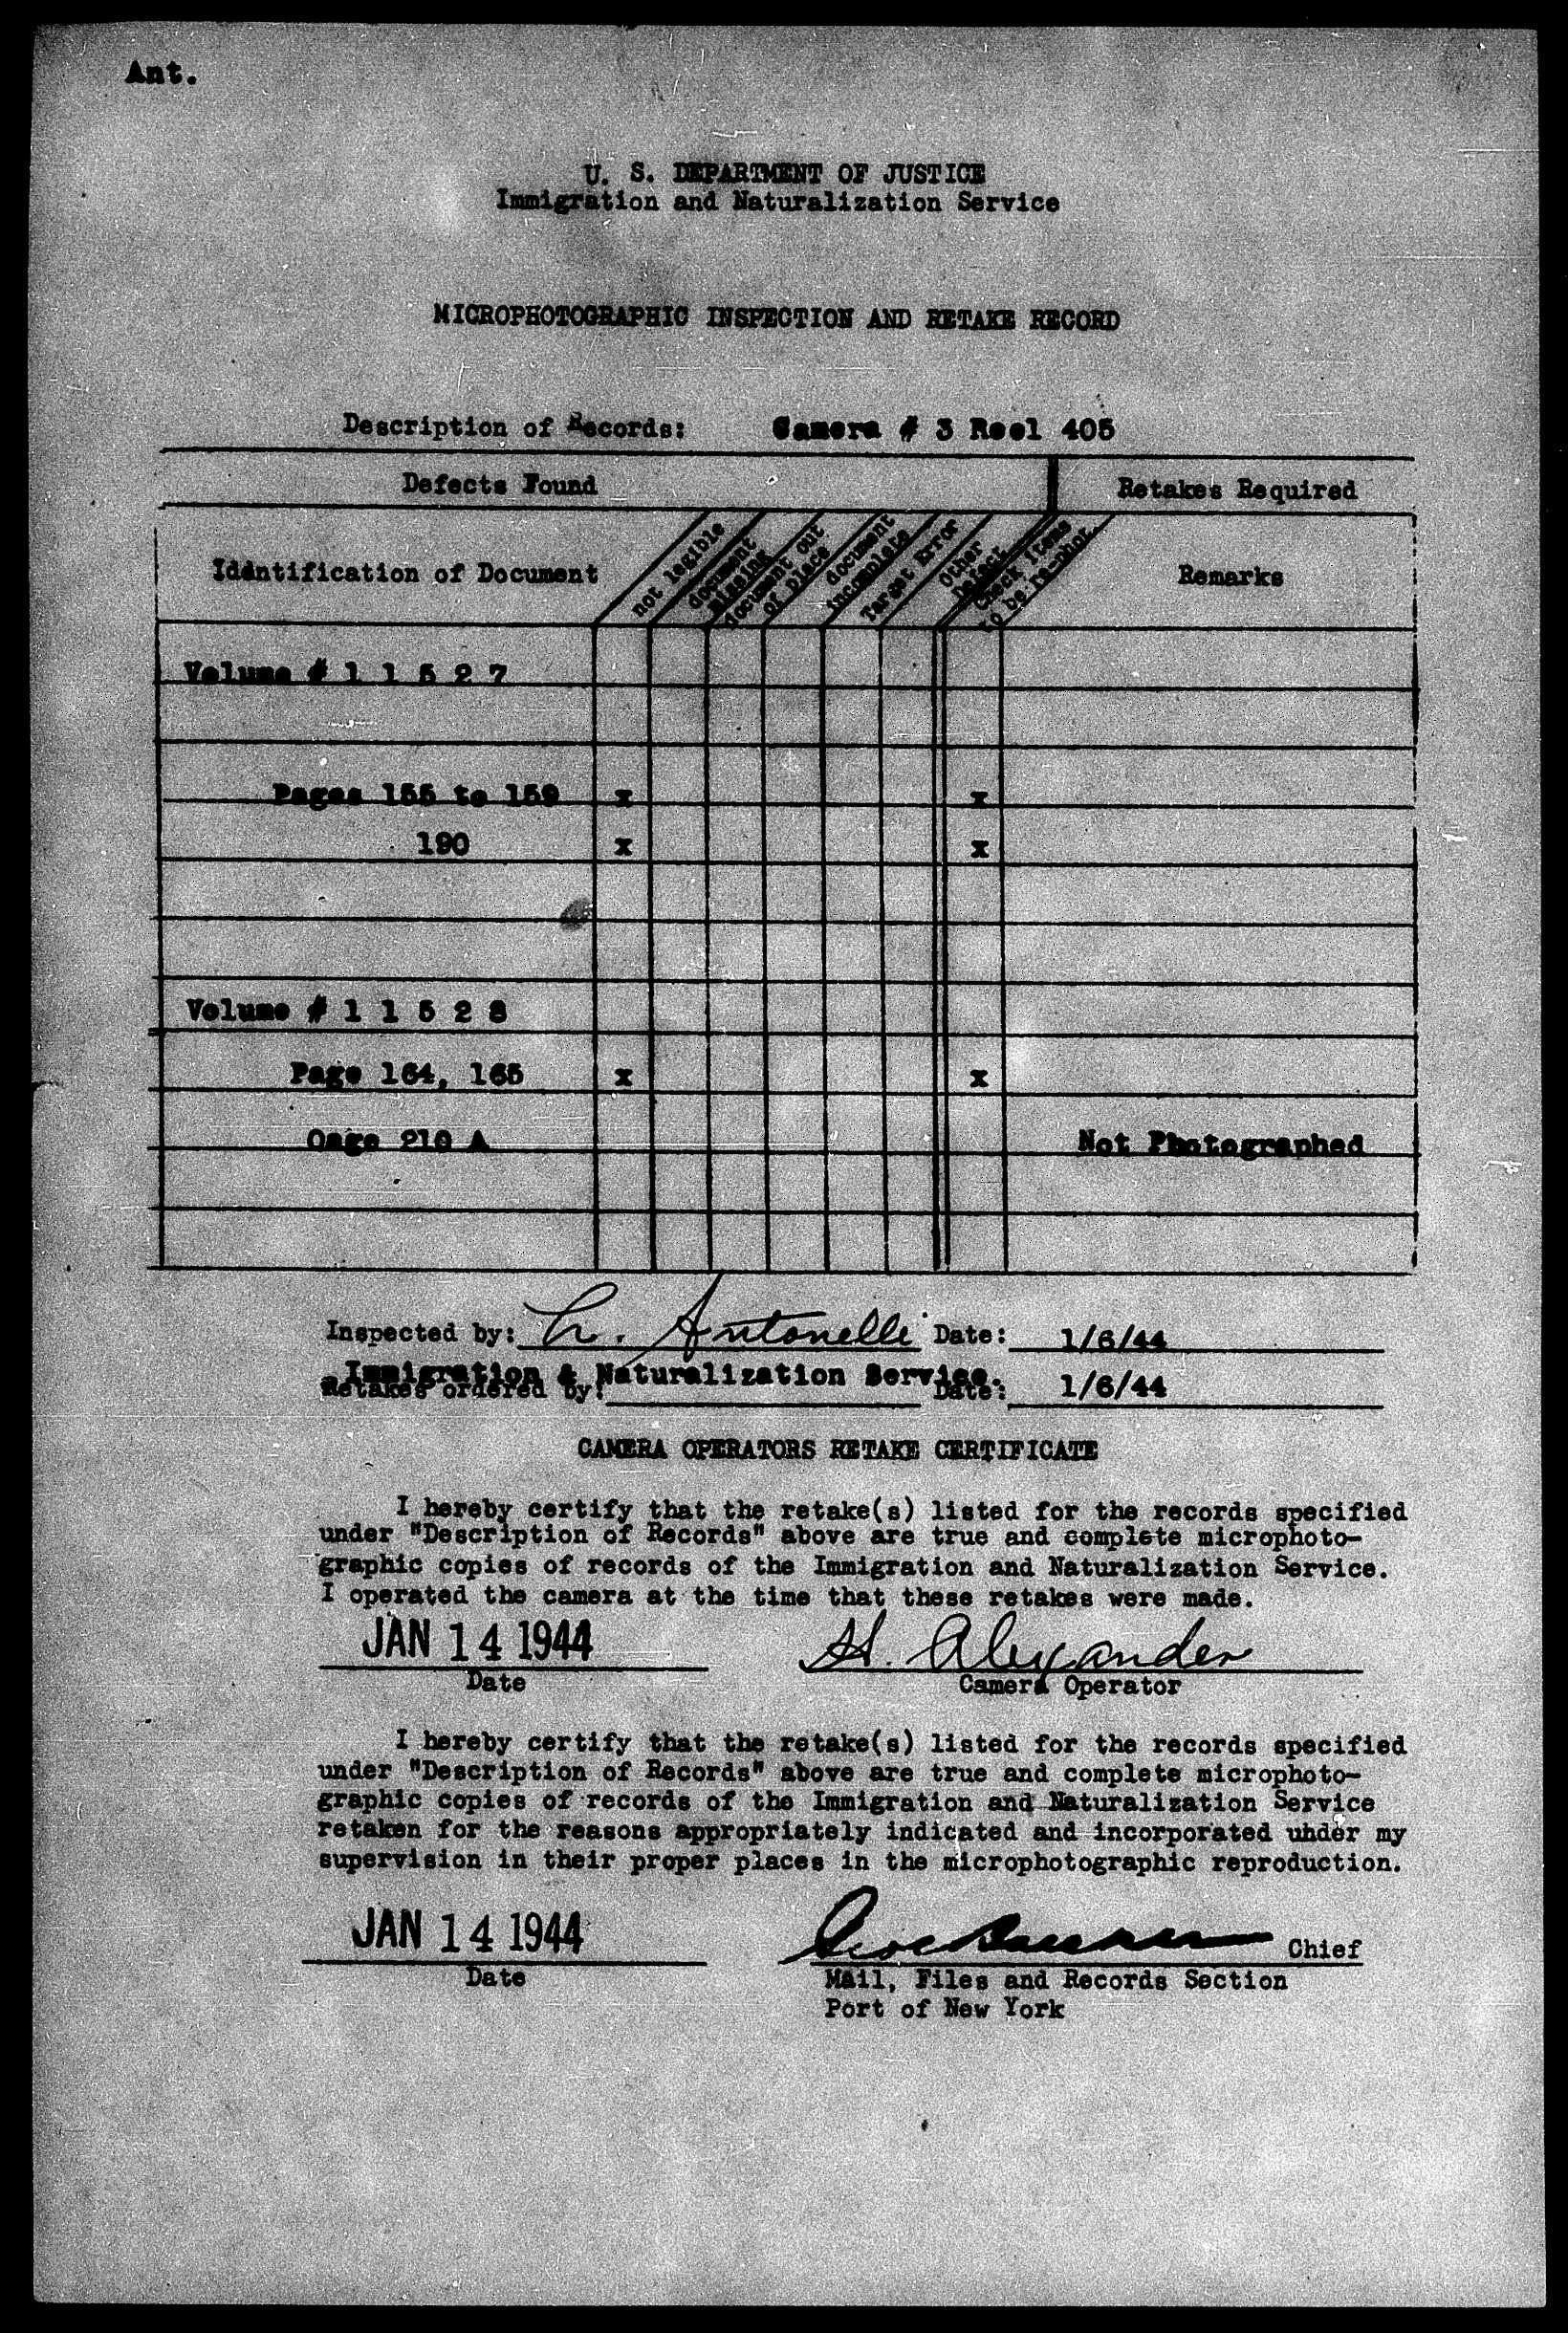 Ant.
U. S. DEPARTMENT OF JUSTICE
Immigration and Naturalization Service
MICROPHOTOGRAPHIC INSPECTION AND RETAKE RECORD
Description of Records: Camera # 3 Reel 405
Defects Found
Retakes Required
Identification of Document
not legible
document missing
document out of place
document incomplete
Target Error
Other Defect
Check items to be re-shot
Remarks
Volume # 1 1 5 2 7
Pages 155 to 159 x x
190 x x
Volume # 1 1 5 2 8
Page 164, 165 x x
Oage 210 A Not Photographed
Inspected by: Antonelli Date: 1/6/44
Immigration & Naturalization Service.
Retakes ordered by: Date: 1/6/44
CAMERA OPERATORS RETAKE CERTIFICATE
I hereby certify that the retake(s) listed for the records specified
under "Description of Records" above are true and complete microphoto-
graphic copies of records of the Immigration and Naturalization Service.
I operated the camera at the time that these retakes were made.
JAN 14 1944 H. Alexander
Date Camera Operator
I hereby certify that the retake(s) listed for the records specified
under "Description of Records" above are true and complete microphoto-
graphic copies of records of the Immigration and Naturalization Service
retaken for the reasons appropriately indicated and incorporated under my
supervision in their proper places in the microphotographic reproduction.
JAN 14 1944 Chief
Date Mail, Files and Records Section
Port of New York